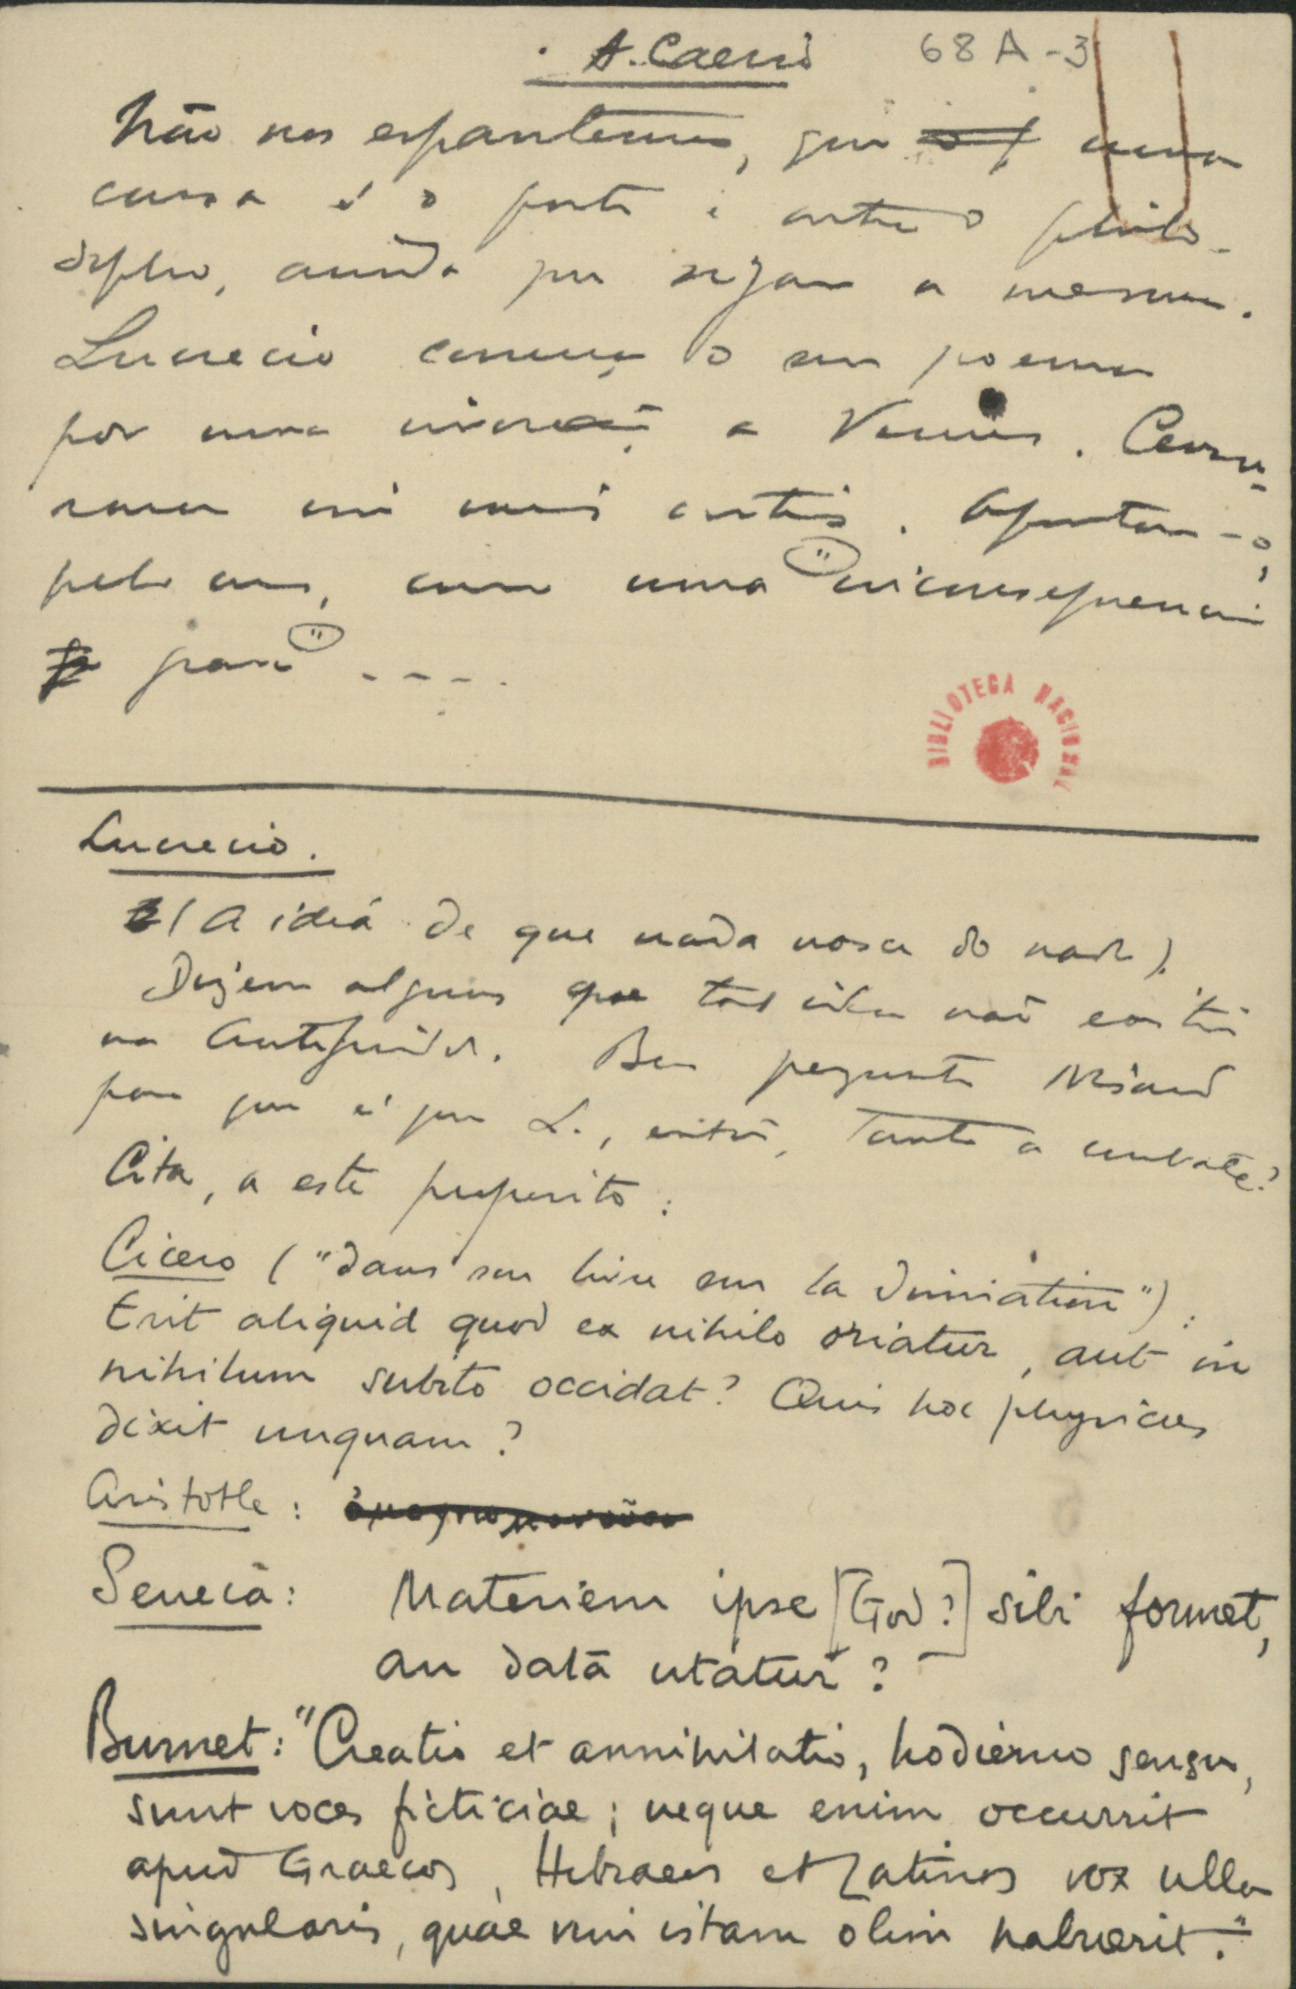 A. Caeiro
68A-3
Não nos espantemos, que uma
cousa é o poeta e outra o philo-
sopho, ainda que sejam a mesma.
Lucrecio começa o seu poema
por uma invocação a Venus. Censu-
raram isso criticos. Apontam-o,
pelo menos, como uma inconsequencia
para ----.
BIBLIOTECA NACIONAL
Lucrecio.
(A idéa de que nada nasce do nada).
Dizem alguns que tal idéa não existia
na Antiguidade. Bem pergunta
para que é que L., então, tanto a combate?
Cita, a este proposito:
Cicero ("dans son livre sur la divination"):
Erit aliquid quod ex nihilo oriatur, aut in
nihilum subito occidat? Quis hoc physicus
dixit unquam?
Aristotle:
Seneca: Materiem ipse [God?] sibi formet,
an datâ utatur?
Burnet: "Creatio et annihilatio, hodierno sensu,
sunt voces ficticiae; neque enim occurrit
apud Graecos, Hebraeos et Latinos vox ulla
singularis, quae vim istam olim habuerit."